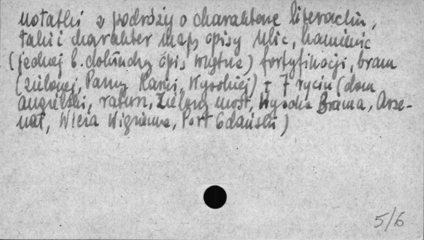 notatki z podróży o charakterze literackim,
taki charakter mają opisy ulic, kamienic
(jednej b. dokładny opis, wnętrza) fortyfikacji, bram
(Zielonej, Panny Marii, Wysokiej) + 7 rycin (dom
angielski, ratusz, Zielony most, Wysoka Brama, Arse-
nał, Wieża Więzienna, Port Gdański)
5/6